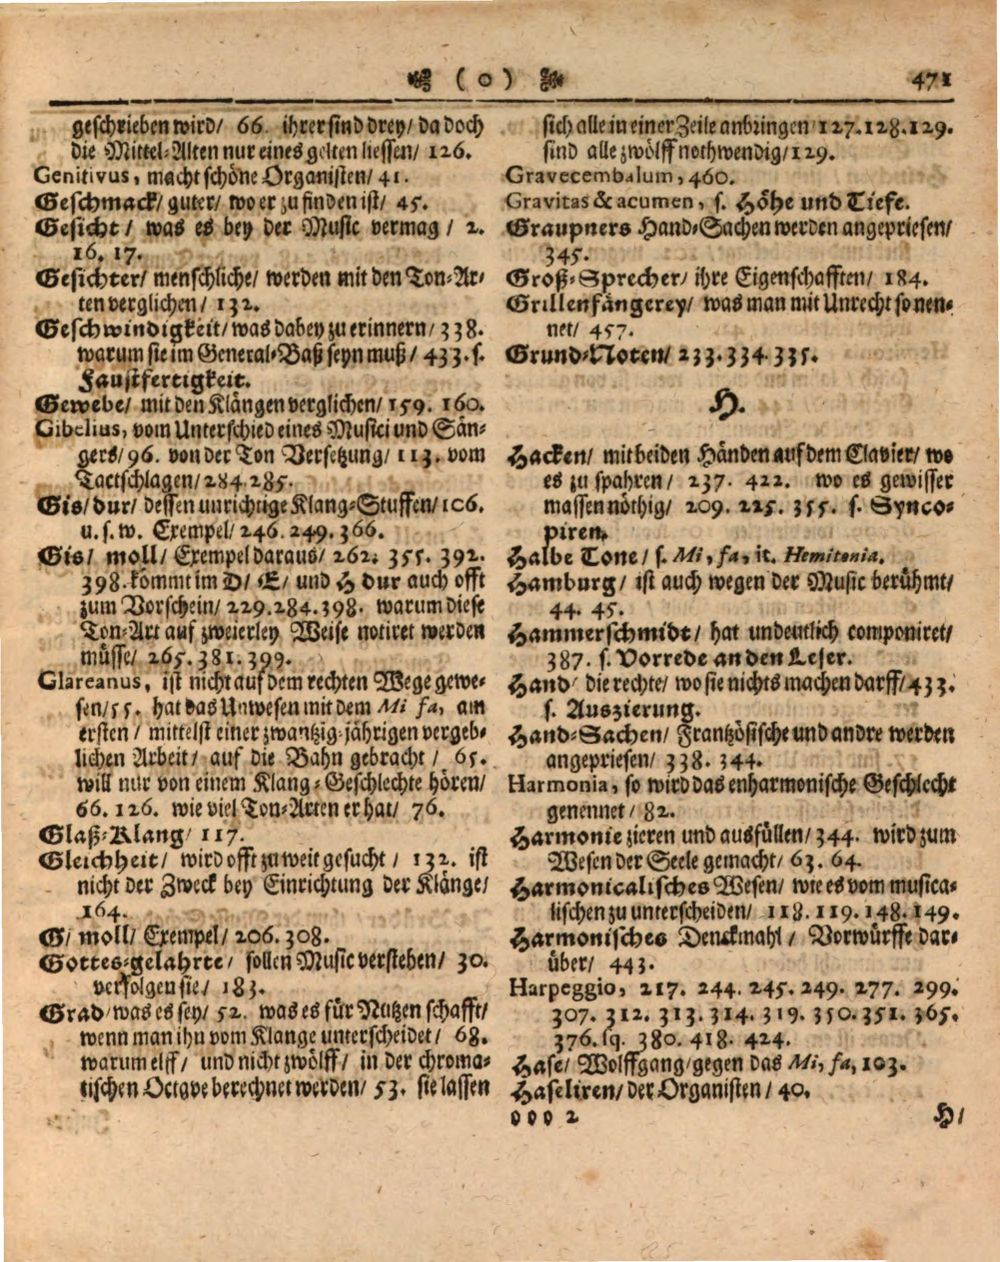 ( o ) 471
geschrieben wird/ 66. ihrer sind drey/ da doch
die Mittel-Alten nur eines gelten liessen/ 126.
Genitivus, macht schöne Organisten/ 41.
Geschmack/ guter/ wo er zu finden ist/ 45.
Gesicht / was es bey der Music vermag / 2.
16. 17.
Gesichter/ menschliche/ werden mit den Ton-Ar-
ten verglichen / 132.
Geschwindigkeit/ was dabey zu erinnern/ 338.
warum sie im General-Baß seyn muß / 433. s.
Faustfertigkeit.
Gewebe/ mit den Klängen verglichen/ 159. 160.
Gibelius, vom Unterschied eines Musici und Sän-
gers/ 96. von der Ton Versetzung/ 113. vom
Tactschlagen/ 284. 285.
Gis/ dur/ dessen unrichtige Klang-Stuffen/ 106.
u. s. w. Exempel/ 246. 249. 366.
Gis/ moll/ Exempel daraus/ 262. 355. 392.
398. kommt im D/ E/ und H dur auch offt
zum Vorschein/ 229. 284. 398. warum diese
Ton-Art auf zweierley Weise notiret werden
müsse/ 265. 381. 399.
Glareanus, ist nicht auf dem rechten Wege gewe-
sen/ 55. hat das Unwesen mit dem Mi fa, am
ersten / mittelst einer zwantzig-jährigen vergeb-
lichen Arbeit/ auf die Bahn gebracht / 65.
will nur von einem Klang-Geschlechte hören/
66. 126. wie viel Ton-Arten er hat/ 76.
Glaß-Klang/ 117.
Gleichheit/ wird offt zu weit gesucht / 132. ist
nicht der Zweck bey Einrichtung der Klänge/
164.
G/ moll/ Exempel/ 206. 308.
Gottes-gelahrte/ sollen Music verstehen/ 30.
verfolgen sie/ 183.
Grad/ was es sey/ 52. was es für Nutzen schafft/
wenn man ihn vom Klange unterscheidet/ 68.
warum elff/ und nicht zwölff/ in der chroma-
tischen Octave berechnet werden/ 53. sie lassen
sich alle in einer Zeile anbringen/ 127. 128. 129.
sind alle zwölff nothwendig/ 129.
Gravecembalum, 460.
Gravitas & acumen, s. Höhe und Tiefe.
Graupners Hand-Sachen werden angepriesen/
345.
Groß-Sprecher/ ihre Eigenschafften/ 184.
Grillenfängerey/ was man mit Unrecht so nen-
net/ 457.
Grund-Noten/ 233. 334. 335.
H.
Hacken/ mit beiden Händen auf dem Clavier/ wo
es zu spahren / 237. 422. wo es gewisser
massen nöthig/ 209. 225. 355. s. Synco-
piren.
Halbe Tone/ s. Mi, fa, it. Hemitonia.
Hamburg/ ist auch wegen der Music berühmt/
44. 45.
Hammerschmidt/ hat undeutlich componiret/
387. s. Vorrede an den Leser.
Hand/ die rechte/ wo sie nichts machen darff/ 433.
s. Auszierung.
Hand-Sachen/ Frantzösische und andre werden
angepriesen/ 338. 344.
Harmonia, so wird das enharmonische Geschlecht
genennet / 82.
Harmonie zieren und ausfüllen/ 344. wird zum
Wesen der Seele gemacht/ 63. 64.
Harmonicalisches Wesen/ wie es vom musica-
lischen zu unterscheiden/ 118. 119. 148. 149.
Harmonisches Denckmahl / Vorwürffe dar-
über/ 443.
Harpeggio, 217. 244. 245. 249. 277. 299.
307. 312. 313. 314. 319. 350. 351. 365.
376. sq. 380. 418. 424.
Hase/ Wolffgang/ gegen das Mi, fa, 103.
Haseliren/ der Organisten / 40.
O o o 2 H/